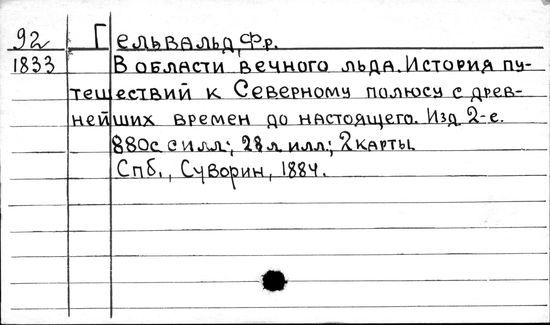 92 Гельвальд, Фр.
1833 В области вечного льда. История пу-
тешествий к Северному полюсу с древ-
нейших времен до настоящего. Изд. 2-е.
880с. с илл.; 28 л илл.; 2 карты.
Спб., Суворин, 1884.